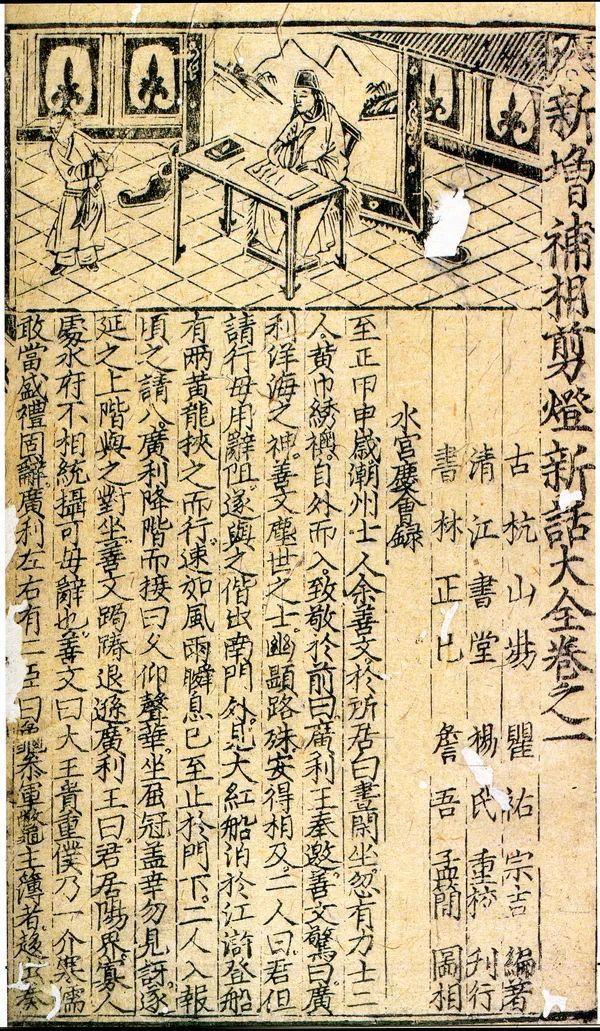 新増補相剪燈新話大全卷之一
古杭山陽瞿祐宗吉編著
清江書堂楊氏重校刊行
書林正己詹吾孟簡圖相
水宮慶會録
至正甲申歲潮州士人余善文於所居白晝閑坐忽有力士二
人黄巾綉襖自外而入致敬於前曰廣利王奉邀善文驚曰廣
利洋海之神善文塵世之士幽顯路殊安得相及二人曰君但
請行毋用辭阻遂與之偕出南門外見大紅船泊於江滸登船
有兩黄龍挾之而行速如風雨瞬息已至止於門下二人入報
頃之請入廣利降階而接曰久仰聲華坐屈冠盖幸勿見訝遂
延之上階與之對坐善文跼蹐退遜廣利王曰君居陽界寡人
處水府不相統攝可毋辭也善文曰大王貴重僕乃一介寒儒
敢當盛禮固辭廣利左右有二臣曰黿參軍鱉主簿者趨出奏